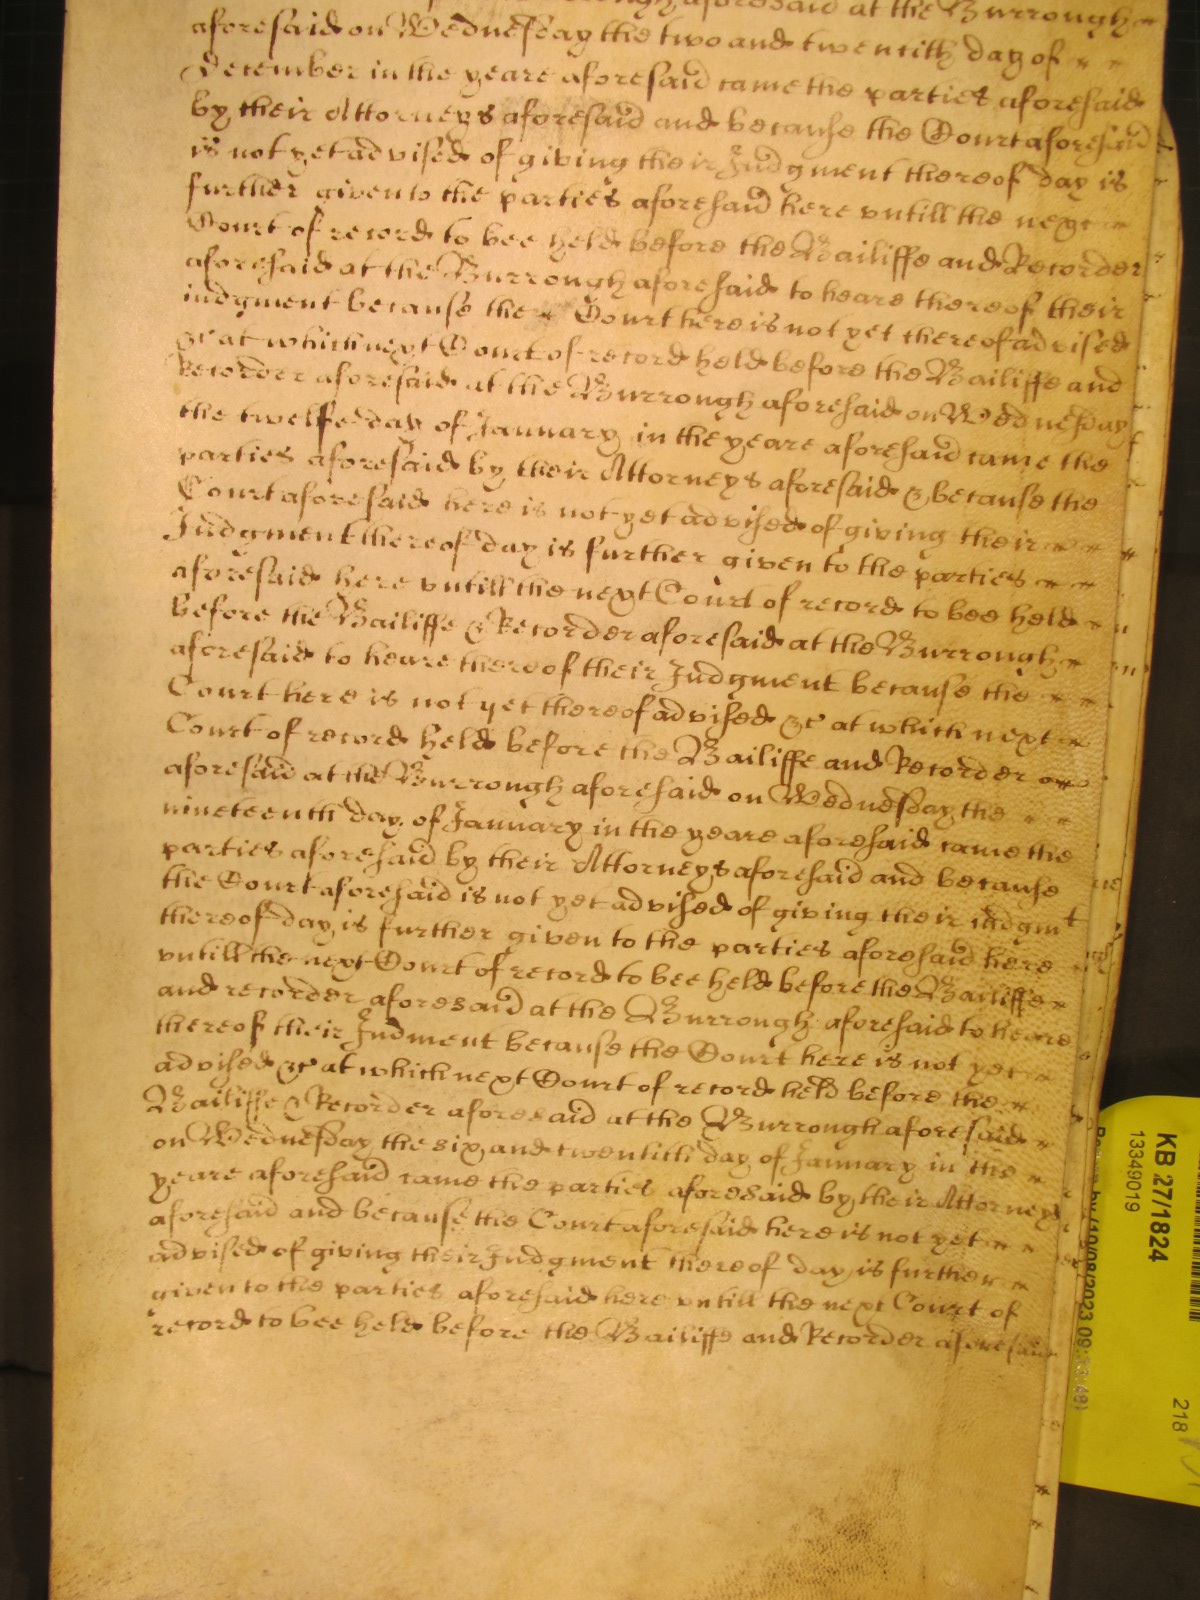 aforesaid at the Burrough
aforesaid on Wednesday the two and twentith day of
December in the yeare aforesaid came the parties aforesaid
by their Attorneys aforesaid and because the Court aforesaid
is not yet advised of giving their Judgment thereof day is
further given to the parties aforesaid here vntill the next
Court of record to bee held before the Bailiffe and Recorder
aforesaid at the Burrough aforesaid to heare thereof their
iudgment because the Court here is not yet thereof advised
&c at which next Court of record held before the Bailiffe and
Recorder aforesaid at the Burrough aforesaid on Wednesday
the twelfe day of January in the yeare aforesaid came the
parties aforesaid by their Attorneys aforesaid & because the
Court aforesaid here is not yet advised of giving their
Judgment thereof day is further given to the parties
aforesaid here vntill the next Court of record to bee held
before the Bailiffe & Recorder aforesaid at the Burrough
aforesaid to heare thereof their Judgment because the
Court here is not yet thereof advised &c at which next
Court of record held before the Bailiffe and Recorder
aforesaid at the Burrough aforesaid on Wednesday the
nineteenth day of January in the yeare aforesaid came the
parties aforesaid by their Attorneys aforesaid and because
the Court aforesaid is not yet advised of giving their iudgmt
thereof day is further given to the parties aforesaid here
vntill the next Court of record to bee held before the Bailiffe
and recorder aforesaid at the Burrough aforesaid to heare
thereof their Judment because the Court here is not yet
advised &c at which next Court of record held before the
Bailiffe & Recorder aforesaid at the Burrough aforesaid
on Wednesday the six and twentith day of January in the
yeare aforesaid came the parties aforesaid by their Attorneys
aforesaid and because the Court aforesaid here is not yet
advised of giving their Judgment thereof day is further
given to the parties aforesaid here vntill the next Court of
record to bee held before the Bailiffe and Recorder aforesaid
KB 27/1824
13349019
218